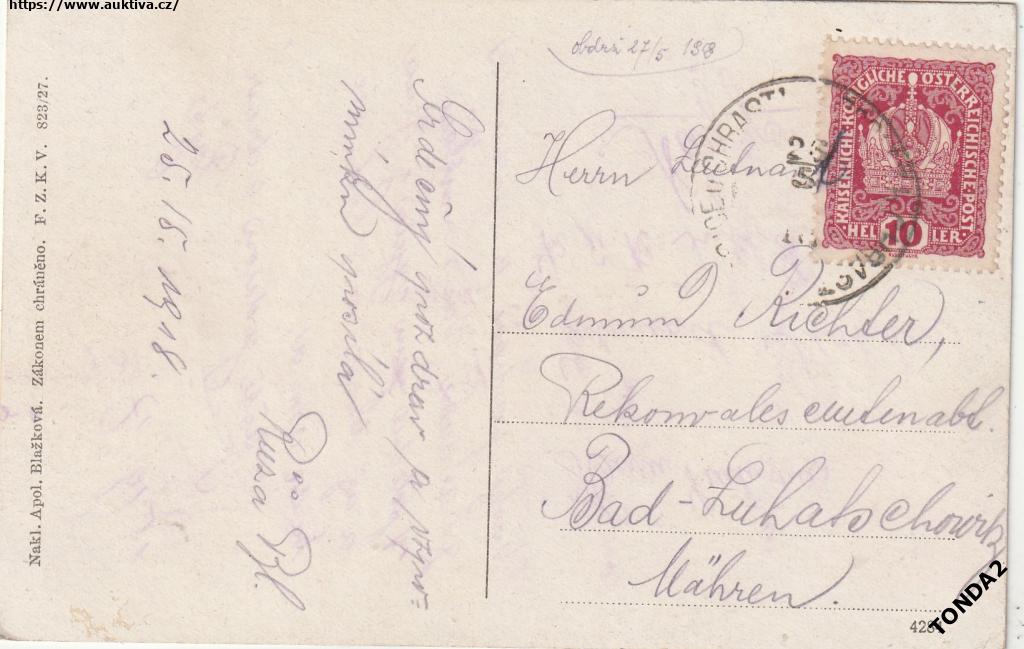 https://www.auktiva.cz/
Nakl. Apol. Blažková. Zákonem chráněno. F. Z. K. V. 823/27.
25. /5. 1918.
Srdečný pozdrav a vzpo=
mínku posílá
Růsa
obdrž 27/5 1918
KAISERLICHE KÖNIGLICHE ÖSTERREICHISCHE POST.
10
HELLER
Herrn Leutnant
Edmund Richter,
Rekonvalescentenabt.
Bad-Luhatschowitz
Mähren.
TONDA2